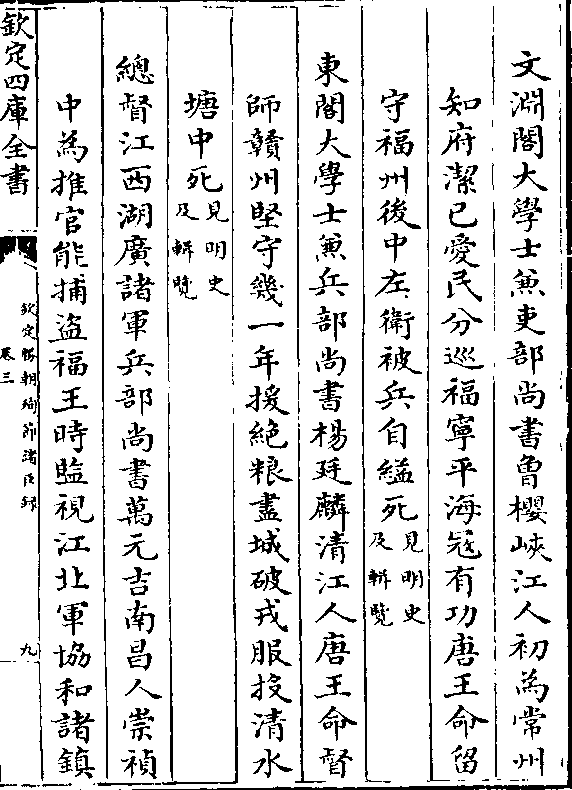 文淵閣大學士兼吏部尚書曾櫻峽江人初為常州
知府潔已愛民分巡福寧平海冦有功唐王命留
守福州後中左衛被兵自縊死見明史及輯覽
東閣大學士兼兵部尚書楊廷麟清江人唐王命督
師贛州堅守幾一年援絶粮盡城破戎服投清水
塘中死見明史及輯覽
總督江西湖廣諸軍兵部尚書萬元吉南昌人崇禎
中為推官能捕盗福王時監視江北軍協和諸鎮
欽定四庫全書
欽定勝朝殉節諸臣録
卷三
九